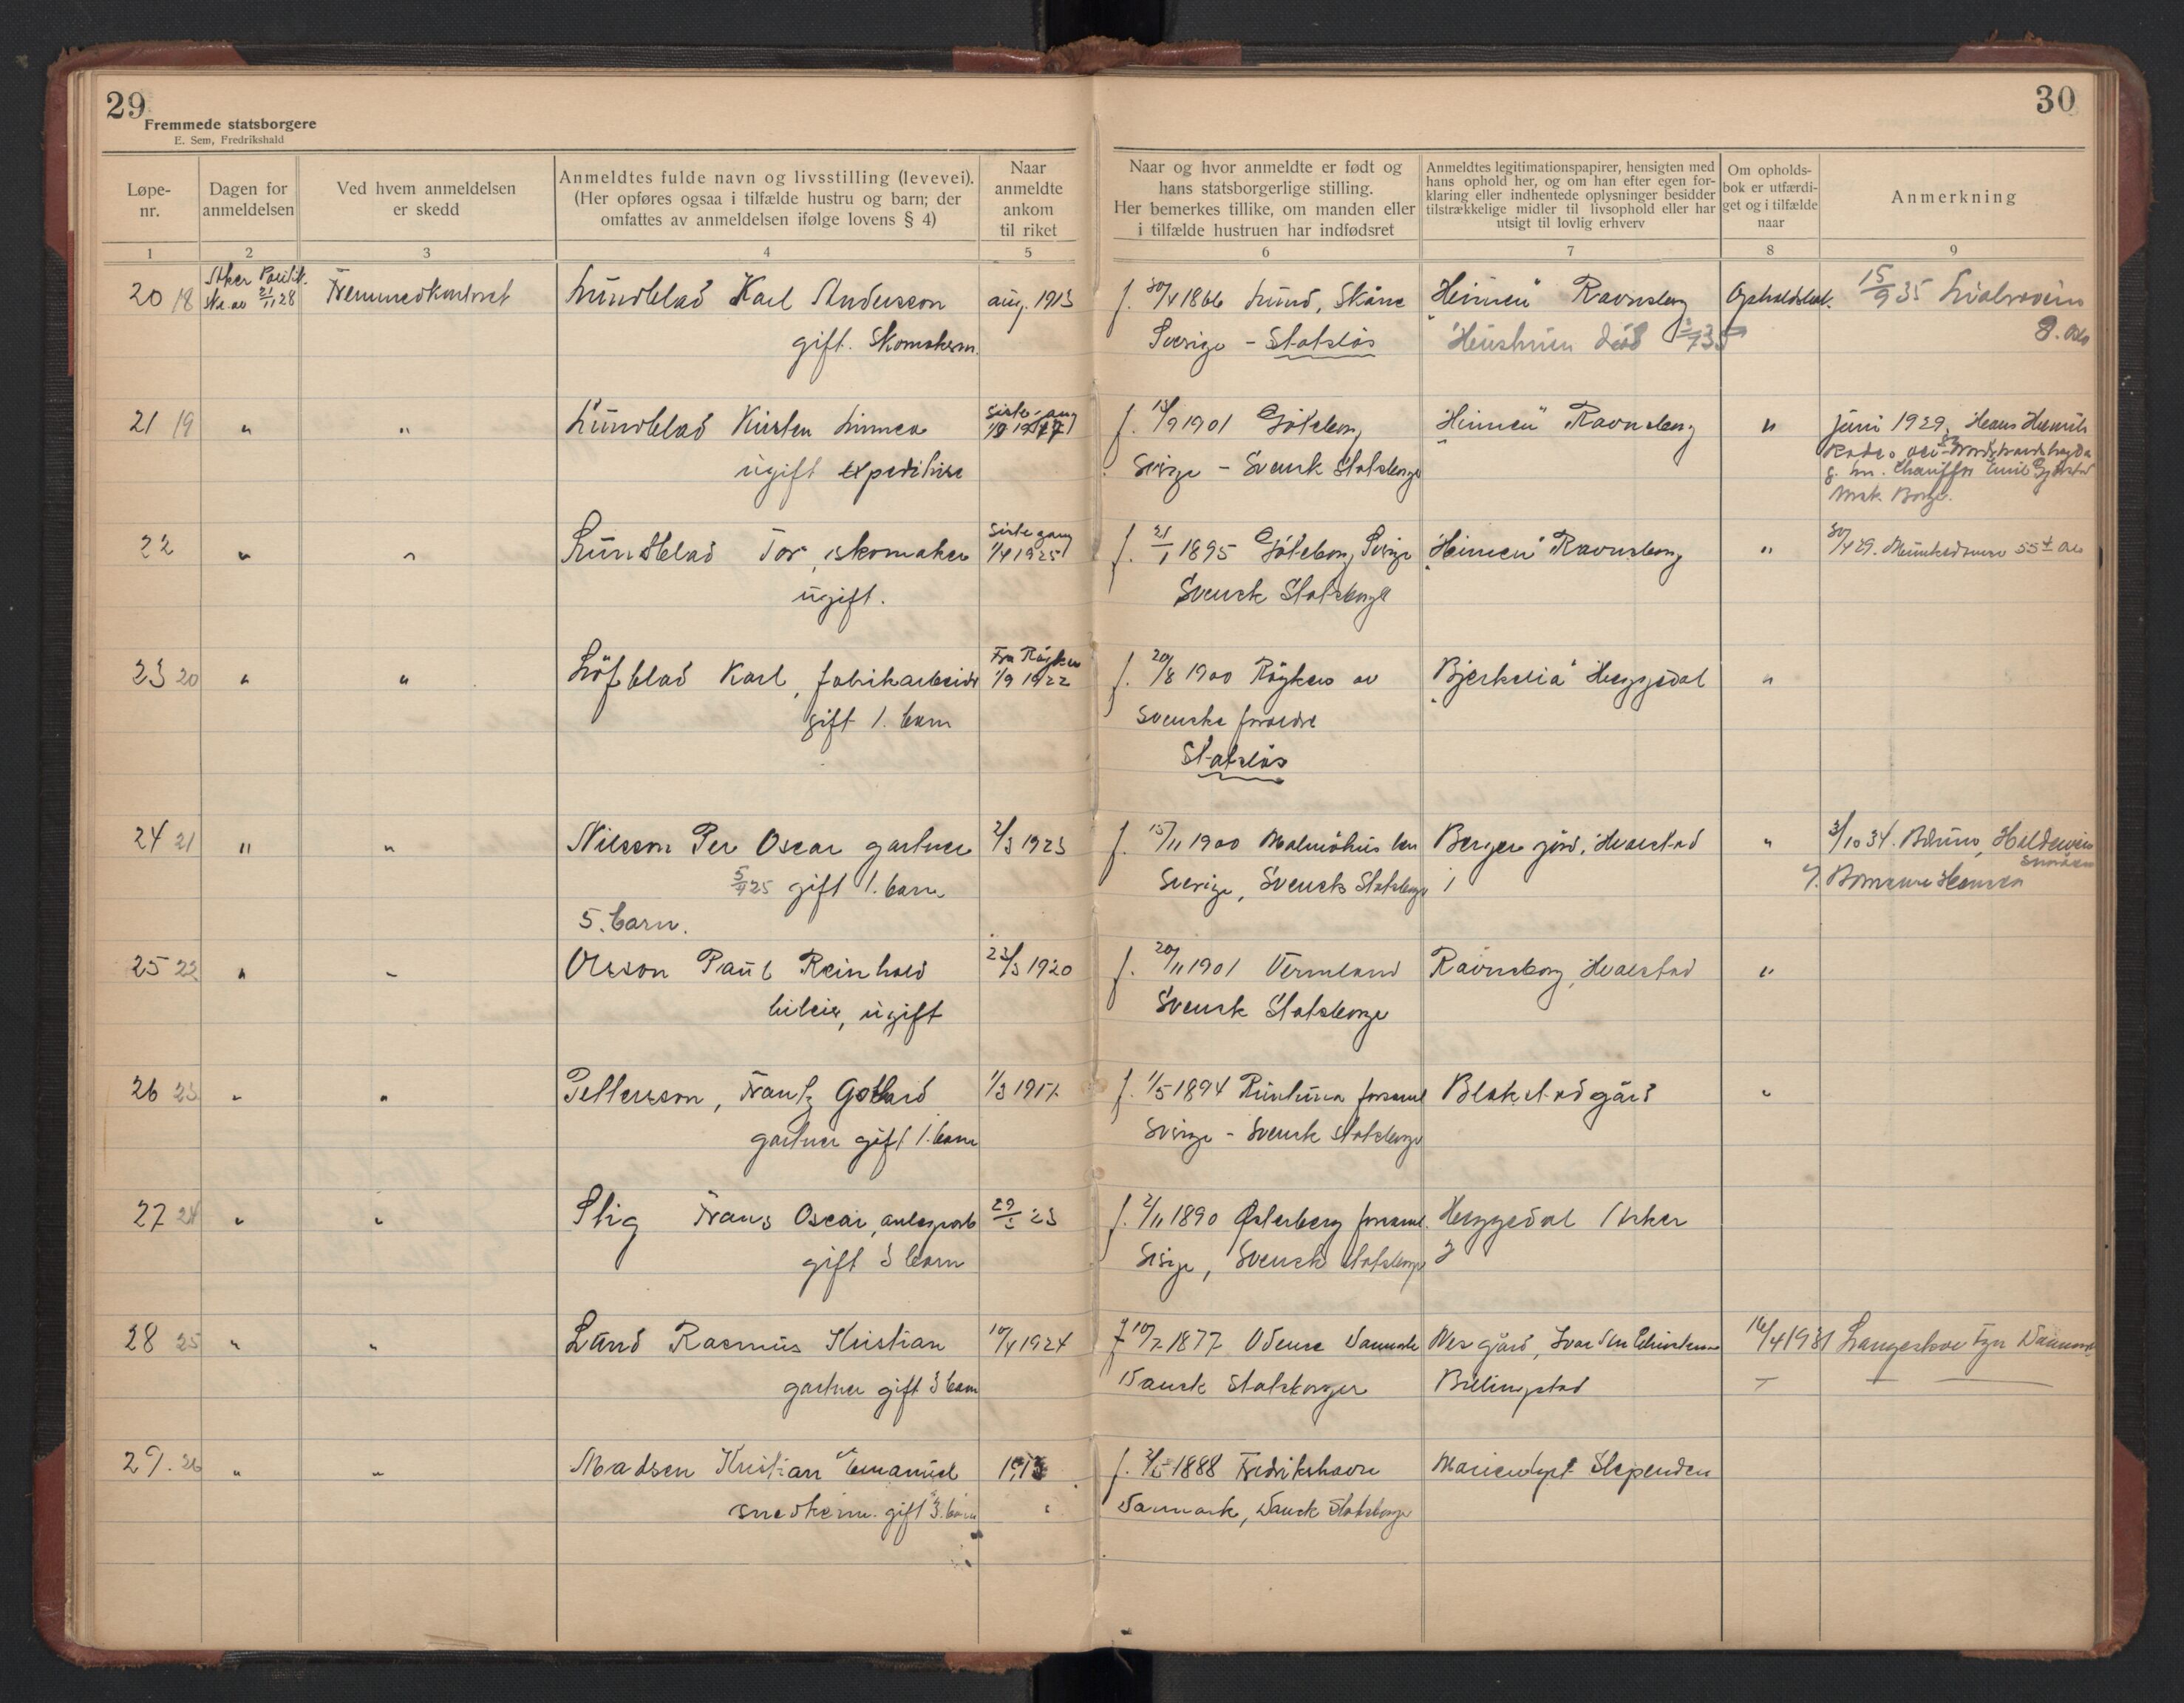 29
Fremmede statsborgere
E. Sem, Fredrikshald
30
Løpe-
nr.
Dagen for
anmeldelsen
Ved hvem anmeldelsen
er skedd
Anmeldtes fulde navn og livsstilling (levevei).
(Her opføres ogsaa i tilfælde hustru og barn; der
omfattes av anmeldelsen ifølge lovens § 4)
Naar
anmeldte
ankom
til riket
Naar og hvor anmeldte er født og
hans statsborgerlige stilling.
Her bemerkes tillike, om manden eller
i tilfælde hustruen har indfødsret
Anmeldtes legitimationspapirer, hensigten med
hans ophold her, og om han efter egen for-
klaring eller indhentede oplysninger besidder
tilstrækkelige midler til livsophold eller har
utsigt til lovlig erhverv
Om opholds-
bok er utfærdi-
get og i tilfælde
naar
Anmerkning
1 2 3 4 5 6 7 8 9
20 18 Aker Politik. Fremmedkontoret Lundblad Karl Andersson aug. 1913 f. 30/4 1866 Lund, Skåne "Heimen" Ravnsborg Opholdsbok. 15/9 35
ske. av 21/11 28
gift. Skomakerm. Sverige - Statsløs Hustruen død 8. Oslo
21 19 " " Lundblad Kirsten Linnea Siste gang f. 13/9 1901 Göteborg "Heimen" Ravnsborg " juni 1929, Hans
ugift expeditrise Sverige - Svensk Statsborger
g. m. Chauffør Emil
norsk Borger.
22 " " Lundblad Tor, skomaker Siste gang 1/4 1925 f. 21/1 1895 Göteborg, Sverige "Heimen" Ravnsborg " 30/4 29. Munkedamsv 55
ugift. Svensk Statsborger
23 20 " " Löfblad Karl, fabrikarbeider Fra Røyken 1/9 1922 f. 20/8 1900 Røyken av "Bjerkelia" Heggedal "
gift 1. barn svenske foreldre
Statsløs
24 21 " " Nilsson Per Oscar gartner 2/3 1923 f. 15/11 1900 Malmöhus len Berger gård, Hvalstad " 3/10 34.
5/4 25 gift 1. barn Sverige, Svensk Statsborger
5. barn.
25 22 " " Olsson Paul Reinhold 22/3 1920 f. 20/11 1901 Vermland Ravnsborg, Hvalstad "
bileier, ugift Svensk Statsborger
26 23 " " Pettersson, Frantz Gothard 1/3 1917. f. 1/5 1894 Runtuna forsaml Blakstad gård "
gartner gift 1. barn Sverige - Svensk Statsborger
27 24 " " Stig Frans Oscar, f. 2/11 1890 Østerberg forsaml. Heggedal Asker
gift 3 barn Sverige, Svensk Statsborger
28 25 " " Lund Rasmus Kristian 10/4 1924 f 10/2 1877 Odense Danmark Nes gård, 16/4 1931 Langeskov Fyn Danmark
gartner gift 3 barn Dansk Statsborger Billingstad
29. 26 " " Madsen Kristian Emanuel 1913 1888 Fredrikshavn Marienlyst Slependen
snekkerm. gift 3. barn Danmark, Dansk Statsborger